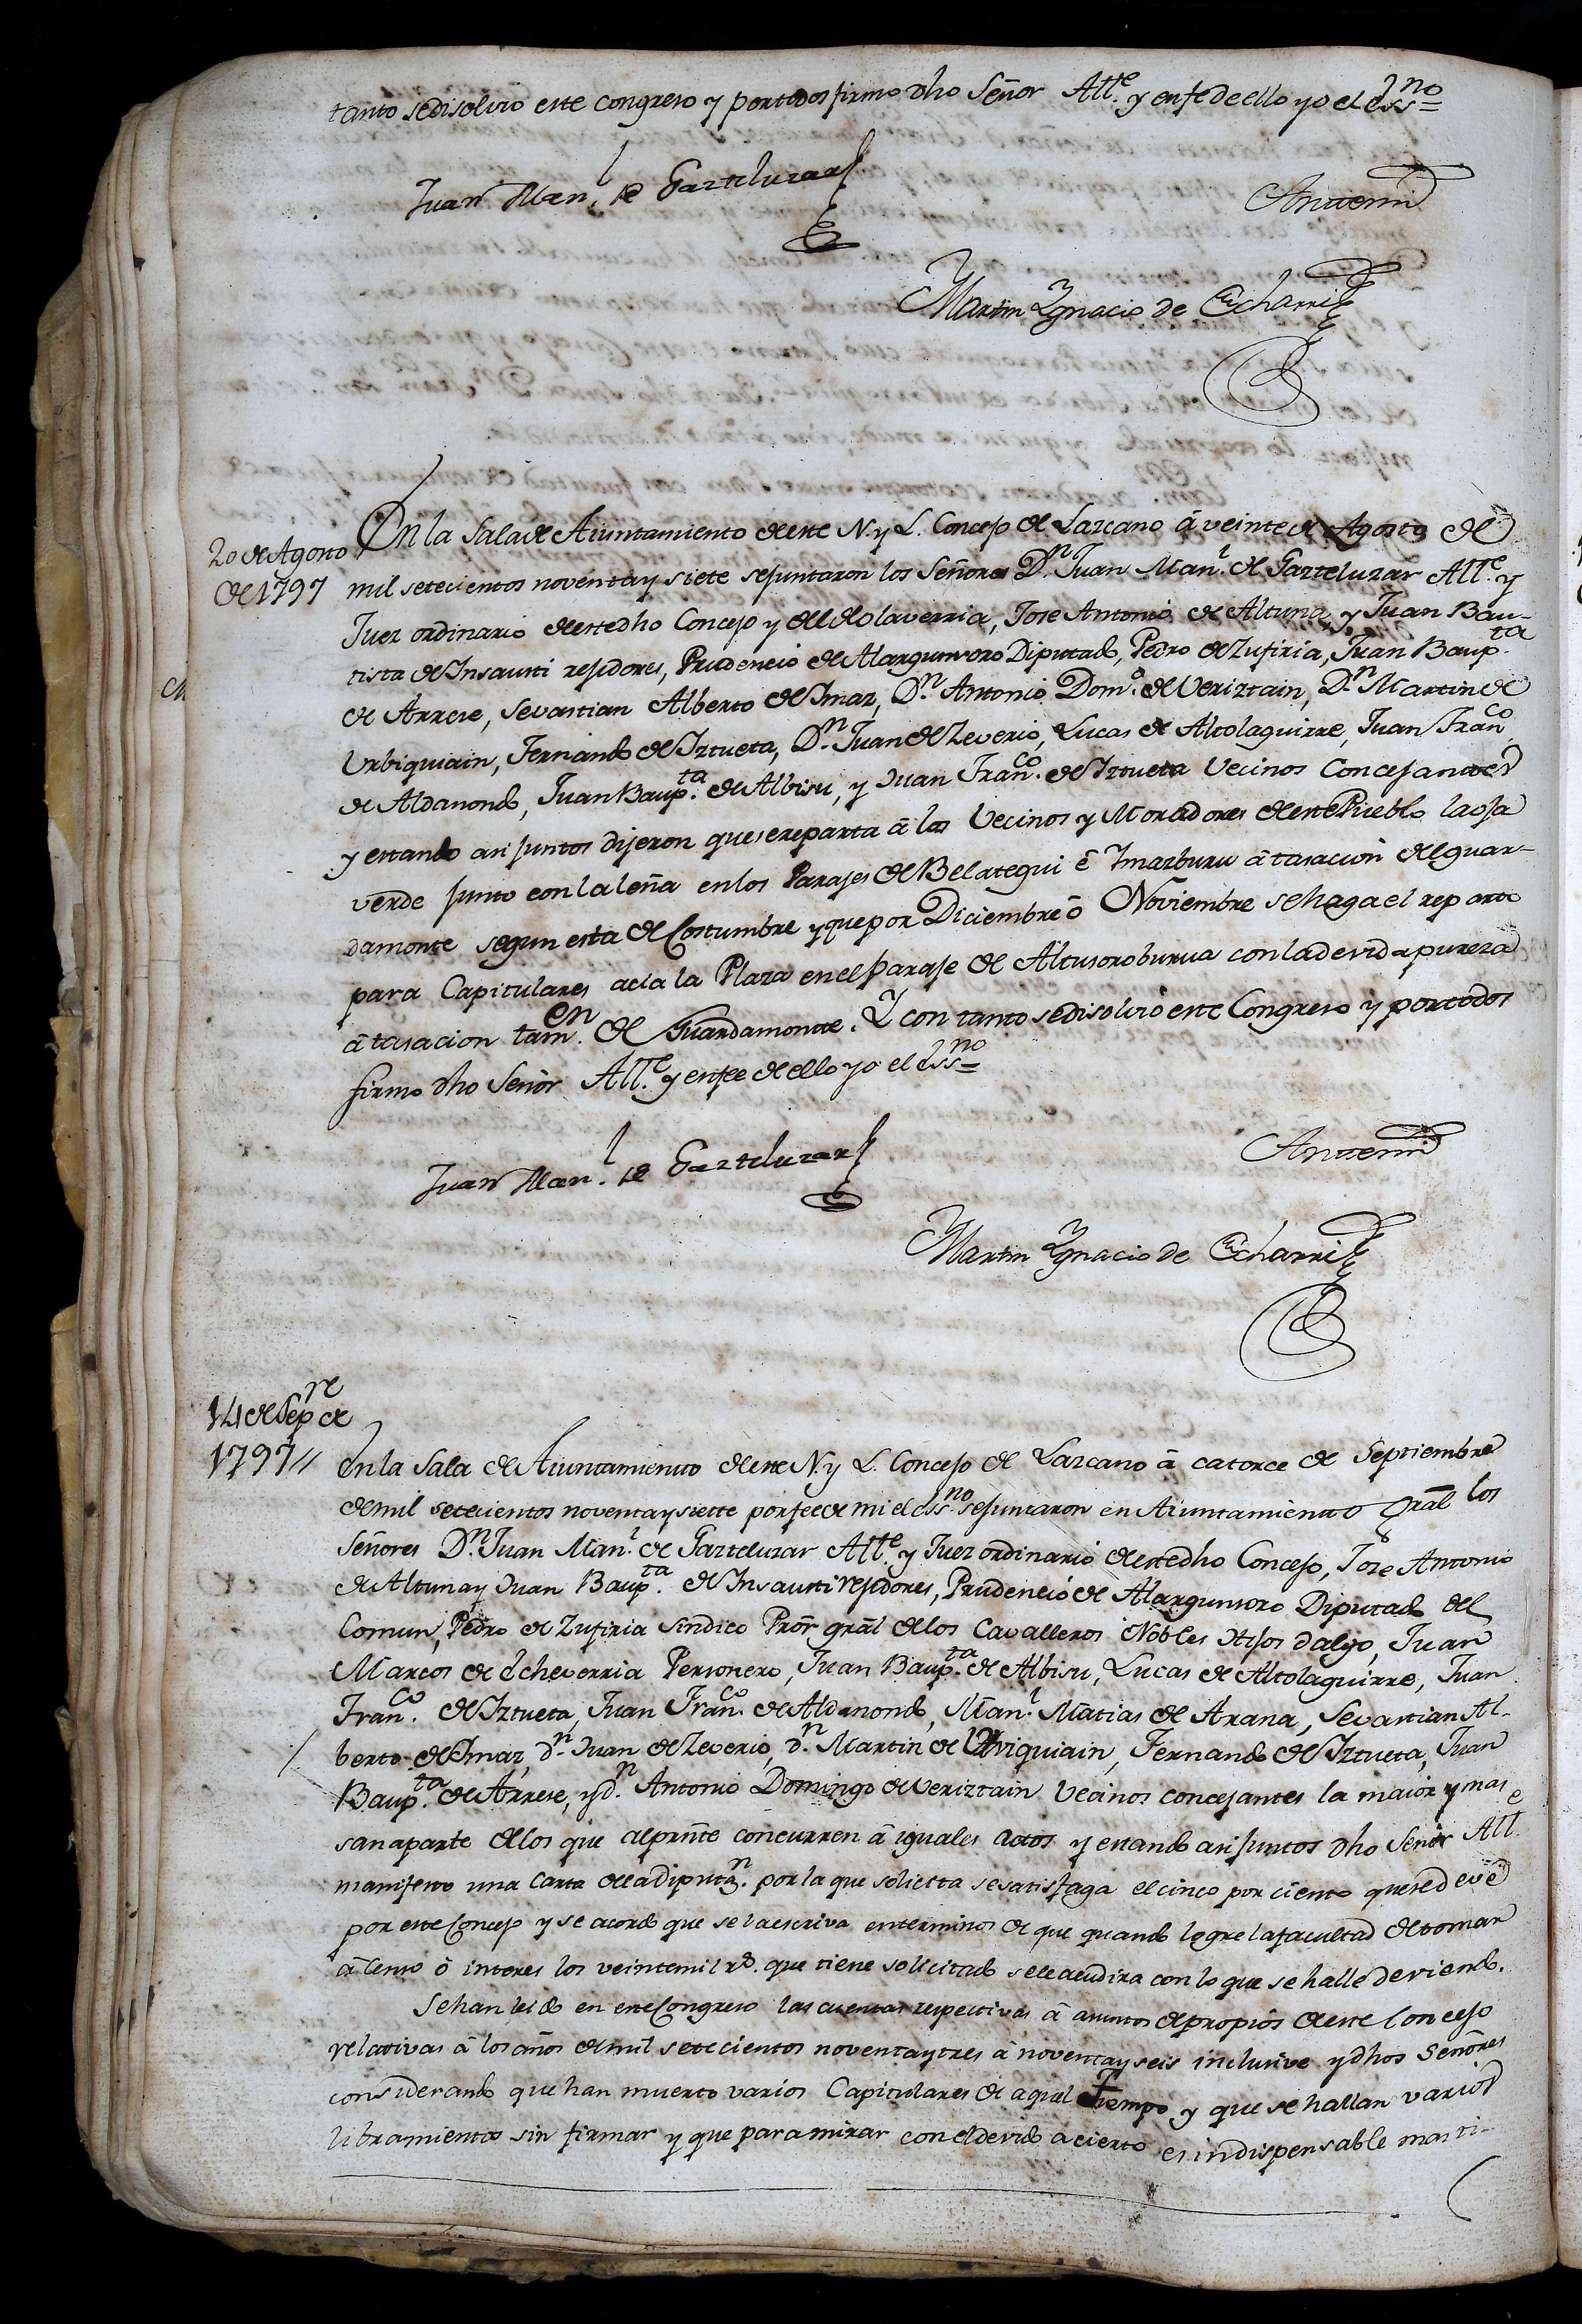 tanto se disolvio este congreso y por todos firmo dho Señor All.e y en fe de ello yo el Ess.no=
Juan Man.l de Garteluzar
Antemi
Martin Ygnacio de Echarri
20 de Agosto
de 1797
En la Sala de Aiuntamiento de este N. y L. Concejo de Lazcano â veinte de Agosto de
mil setecientos noventa y siete se juntaron los Señores D.n Juan Man.l de Garteluzar All.e y
Juez ordinario de este dho Concejo y del de Olaverria, Jose Antonio de Altuna, y Juan Bau-
tista de Insausti rejidores, Prudencio de Alargunsoro Diputado, Pedro de Zufiria, Juan Baup.ta
de Arrese, Sevastian Alberto de Imaz, D.n Antonio Dom.o de Veriztain, D.n Martin de
Urbiquiain, Fernando de Iztueta, D.n Juan de Zeverio, Lucas de Altolaguirre, Juan Fran.co
de Aldanondo, Juan Baup.ta de Albisu, y Juan Fran.co de Iztueta Vecinos Concejantes
y estando asi juntos dijeron que se reparta â los Vecinos y Moradores de este Pueblo la oja
verde junto con la leña en los Parajes de Belategui ê Imazburu â tasacion del guar-
damonte segun esta de Costumbre y que por Diciembre ô Noviembre se haga el reparto
para Capitulares acia la Plaza en el paraje de Altusoroburua con la devida pureza
â tasacion tam.en de Guardamonte. Y con tanto se disolvió este Congreso y por todos
firmo dho Señor All.e y en fee de ello yo el Ess.no=
Juan Man.l de Garteluzar
Antemi
Martin Ygnacio de Echarri
14 de Sep.re de
1797//
En la Sala de Aiuntamiento de este N. y L. Concejo de Lazcano â catorce de Septiembre
de mil setecientos noventa y siette por fee de mi el Ess.no se juntaron en Aiuntamiento Grãl los
Señores D.n Juan Man.l de Garteluzar All.e y Juez ordinario de este dho Concejo, Jose Antonio
de Altuna y Juan Baup.ta de Insausti rejidores, Prudencio de Alargunsoro Diputado del
Comun, Pedro de Zufiria Sindico Prõr grãl de los Cavalleros Nobles Hijos dalgo, Juan
Marcos de Echeverria Personero, Juan Baup.ta de Albisu, Lucas de Altolaguirre, Juan
Fran.co de Iztueta, Juan Fran.co de Aldanondo, Man.l Matias de Arana, Sevastian Al-
berto de Imaz, d.n Juan de Zeverio, d.n Martin de Urviquiain, Fernando de Iztueta, Juan
Baup.ta de Arrese, y d.n Antonio Domingo de Veriztain Vecinos concejantes la maior y mas
sana parte de los que al prnte concurren â iguales actos y estando asi juntos dho Señor All.e
manifesto una Carta de la diputaz.n por la que solicita se satisfaga el cinco por ciento que se deve
por este Concejo y se acordo que se la escriva en terminos de que quando logre la facultad de tomar
â Censo ô interes los veinte mil r.s que tiene solicitado se le acudira con lo que se halle deviendo.
Se han leido en este Congreso las cuentas respectivas â asuntos de propios de este Concejo
relativas â los años de mil setecientos noventa y tres â noventa y seis inclusive y dhos Señores
considerando que han muerto varios Capitulares de aquel Tiempo y que se hallan varios
libramientos sin firmar y que para mirar con el devido acierto es indispensable mas ti-